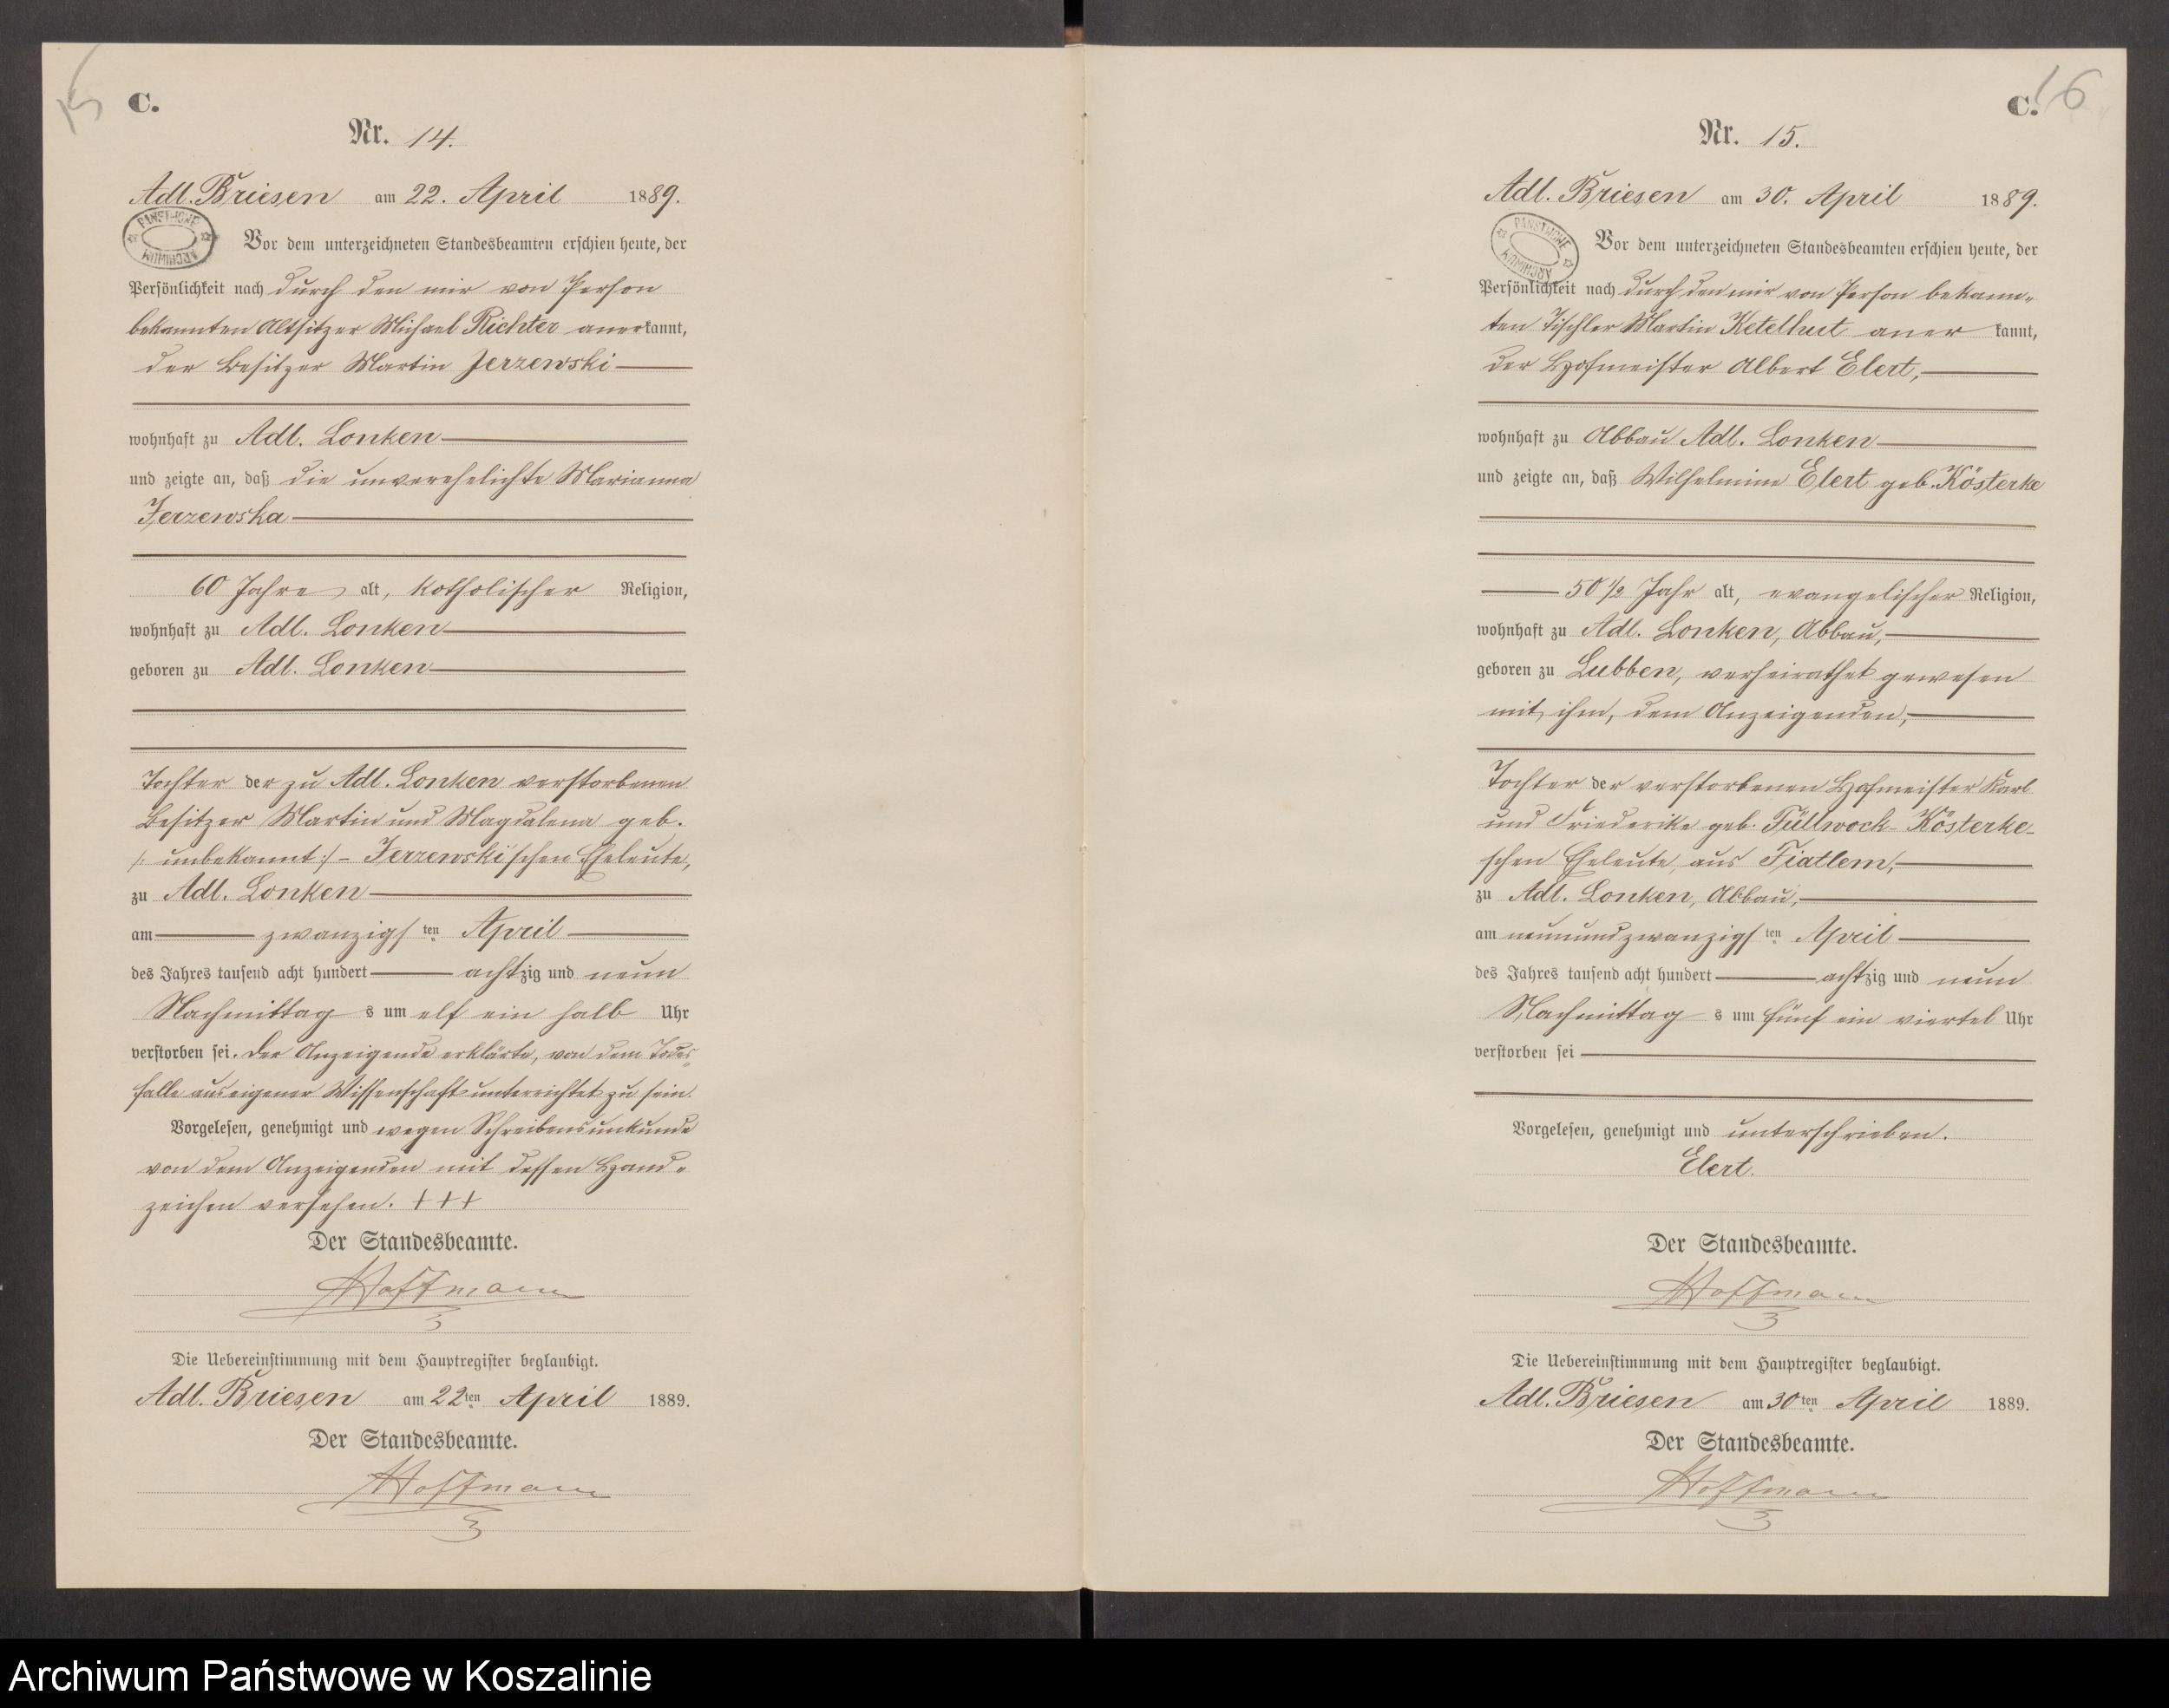 15
C.
Nr. 14.
Adl. Briesen am 22. April 1889.
PAŃSTWOWE ARCHIWUM
Vor dem unterzeichneten Standesbeamten erschien heute, der
Persönlichkeit nach durch den mir von Person
bekannten Altsitzer Michael Richter anerkannt,
der Besitzer Martin Jerzewski
wohnhaft zu Adl. Lonken
und zeigte an, daß die unverehelichte Marianna
Jerzewska
60 Jahre alt, katholischer Religion,
wohnhaft zu Adl. Lonken
geboren zu Adl. Lonken
Tochter der zu Adl. Lonken verstorbenen
Besitzer Martin und Magdalena geb.
/: unbekannt :/ - Jerzewski'schen Eheleute,
zu Adl. Lonken
am zwanzigsten April
des Jahres tausend acht hundert achtzig und neun
Nachmittags um elf ein halb Uhr
verstorben sei. Der Anzeigende erklärte, von dem Todes-
falle aus eigener Wissenschaft unterrichtet zu sein.
Vorgelesen, genehmigt und wegen Schreibensunkunde
von dem Anzeigenden mit dessen Hand-
zeichen versehen. +++
Der Standesbeamte.
Hoffmann
Die Uebereinstimmung mit dem Hauptregister beglaubigt.
Adl. Briesen am 22ten April 1889.
Der Standesbeamte.
Hoffmann
16
C.
Nr. 15.
Adl. Briesen am 30. April 1889.
PAŃSTWOWE ARCHIWUM
Vor dem unterzeichneten Standesbeamten erschien heute, der
Persönlichkeit nach durch den mir von Person bekann-
ten Tischler Martin Ketelhut aner kannt,
der Hofmeister Albert Elert,
wohnhaft zu Abbau Adl. Lonken
und zeigte an, daß Wilhelmine Elert geb. Kösterke
50 1/2 Jahr alt, evangelischer Religion,
wohnhaft zu Adl. Lonken, Abbau,
geboren zu Lubben, verheirathet gewesen
mit ihm, dem Anzeigenden,
Tochter der verstorbenen Hofmeister Karl
und Friederike geb. Füllwock - Kösterke-
schen Eheleute, aus
zu Adl. Lonken, Abbau,
am neunundzwanzigsten April
des Jahres tausend acht hundert achtzig und neun
Nachmittags um fünf ein viertel Uhr
verstorben sei
Vorgelesen, genehmigt und unterschrieben.
Elert.
Der Standesbeamte.
Hoffmann
Die Uebereinstimmung mit dem Hauptregister beglaubigt.
Adl. Briesen am 30ten April 1889.
Der Standesbeamte.
Hoffmann
Archiwum Państwowe w Koszalinie